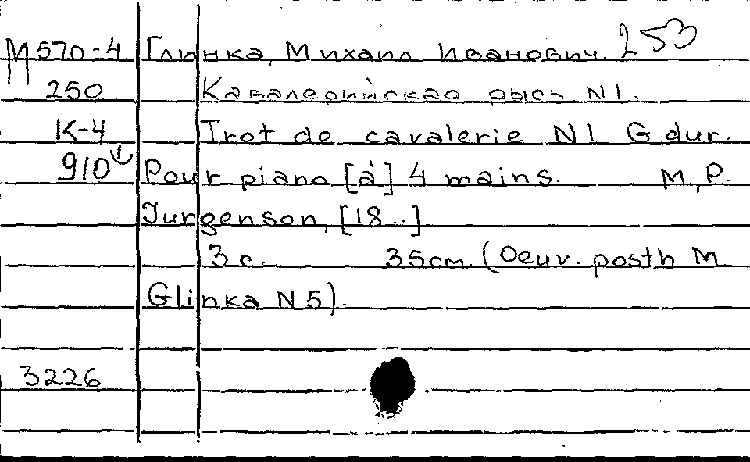 М570-4 Глинка, Михаил Иванович. 253
250 Кавалерийская рысь N1.
К-4 Trot de cavalerie N1 G dur.
910 Pour piano [à] 4 mains. М., P.
Jurgenson, [18..]
3 с. 35см. (Oeuv. posth M.
Glinka N5).
3226